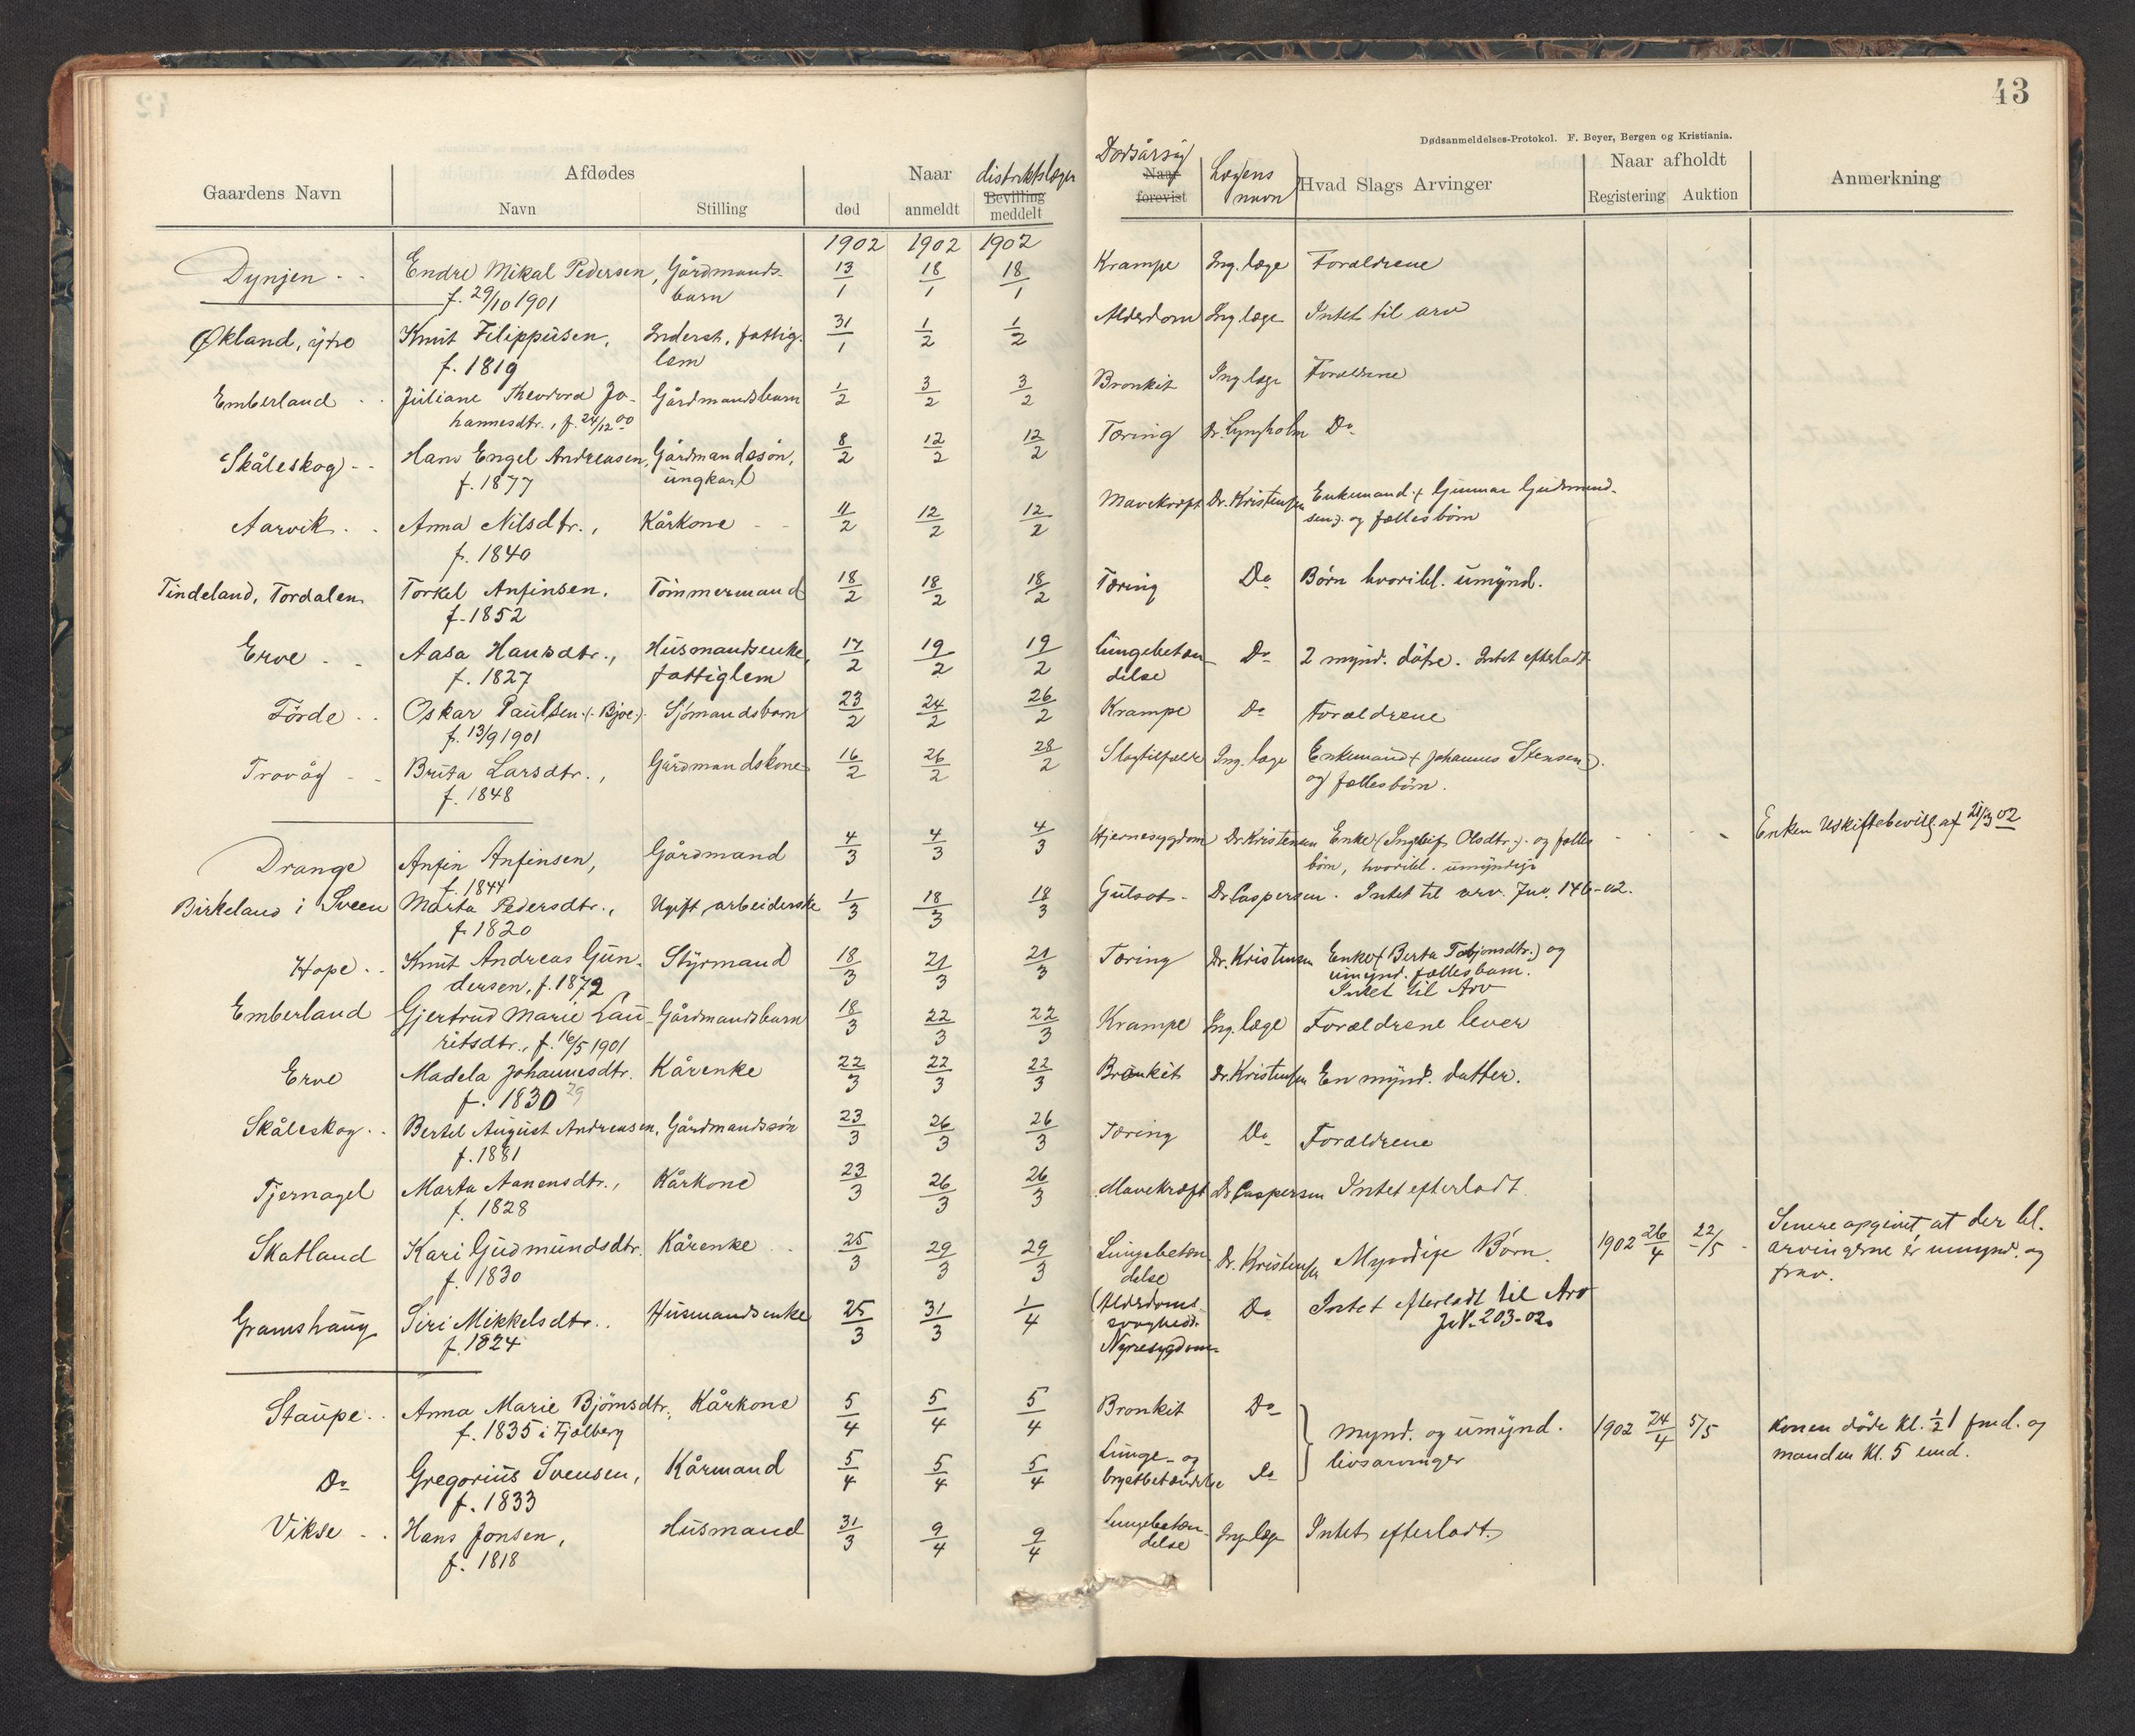 43
Dødsanmeldelses-Protokol. F. Beyer, Bergen og Kristiania.
Gaardens Navn Afdødes Naar distriktslæger Dødsårsag Lægens navn Hvad Slags Arvinger Naar afholdt Anmerkning
Navn Stilling død anmeldt Bevilling meddelt Naar forevist Registering Auktion
1902 1902 1902
Dynjen - - Endre Mikal Pedersen, Gårdmands- 13/1 18/1 18/1 Krampe Ing. læge Forældrene
f. 29/10 1901 barn
Økland, ytre Knut Filippusen, Inderst, fattig- 31/1 1/2 1/2 Alderdom Ing. læge Intet til arv
f. 1819 lem
Emberland - - Juliane Theodora Jo- Gårdmandsbarn 1/2 3/2 3/2 Bronkit Ing. læge Forældrene
hannesdtr., f. 24/12 00
Skåleskog - - Hans Engel Andreasen, Gårdmandssøn, 8/2 12/2 12/2 Tæring Dr. Lyngholm Do
f. 1877 ungkarl
Aarvik - - Anna Nilsdtr., Kårkone - - 11/2 12/2 12/2 Mavekræft Dr. Kristensen Enkemand (Gunnar Gudmund-
f. 1840 sen) og fællesbørn
Tindeland, Tordalen Torkel Anfinsen, Tømmermand 18/2 18/2 18/2 Tæring Do Børn hvoribl. umynd.
f. 1852
Erve - - Aasa Hansdtr., Husmandsenke, 17/2 19/2 19/2 Lungebetæn- Do 2 mynd. døtre. Intet efterladt
f. 1827 fattiglem delse
Førde - - Oskar Paulsen (Bjoe) Sjømandsbarn 23/2 24/2 26/2 Krampe Do Forældrene
f. 13/9 1901
Trovåg - - Brita Larsdtr., Gårdmandskone 16/2 26/2 28/2 Slagtilfælde Ing. læge Enkemand (Johannes Stensen)
f. 1848 og fællesbørn.
Drange Anfin Anfinsen, Gårdmand 4/3 4/3 4/3 Hjernesygdom Dr Kristensen Enke (Ingleif Olsdtr.) og fælles - - - Enken Uskiftebevill. af 21/3 02
f. 1844 børn, hvoribl. umyndige
Birkeland i Sveen Marta Pedersdtr., Ugift arbeiderske 1/3 18/3 18/3 Gulsot - Dr Caspersen. Intet til arv. Jnr. 146-02.
f. 1820
Hope - - Knut Andreas Gun- Styrmand 18/3 21/3 21/3 Tæring Dr. Kristensen Enke (Berta Torbjønsdtr.) og
dersen, f. 1872 umynd. fællesbarn.
Intet til Arv
Emberland Gjertrud Marie Lau- Gårdmandsbarn 18/3 22/3 22/3 Krampe Ing. læge Forældrene lever
ritsdtr., f. 16/5 1901
Erve Madela Johannesdtr. Kårenke 22/3 22/3 22/3 Bronkit Dr. Kristensen En mynd. datter.
f. 1830 29
Skåleskog - - Bertel August Andreasen, Gårdmandssøn 23/3 26/3 26/3 Tæring Do Forældrene
f. 1881
Tjernagel Marta Aanensdtr., Kårkone 23/3 26/3 26/3 Mavekræft Dr Caspersen Intet efterladt
f. 1828
Skatland Kari Gudmundsdtr. Kårenke - - 25/3 29/3 29/3 Lungebetæn- Dr. Kristensen Myndige Børn. 1902 26/4 22/5 - Senere opgivet, at der bl.
f. 1830 delse arvingerne er umynd. og
frav.
Gramshaug Siri Mikkelsdtr. . Husmandsenke 25/3 31/3 1/4 (Alderdoms- Do Intet efterladt til Arv
f. 1824 svaghed) JN. 203-02.
Nyresygdom
Staupe - - Anna Marie Bjørnsdtr., Kårkone 5/4 5/4 5/4 Bronkit Do mynd. og umynd. 1902 24/4 5/5 Konen døde kl. ½1 fmd. og
f. 1835 i Fjelberg livsarvinger manden kl. 5 emd.
Do Gregorius Svensen, Kårmand 5/4 5/4 5/4 Lunge- og Do
f. 1833 brystbetændelse
Vikse - - Hans Jonsen, Husmand 31/3 9/4 9/4 Lungebetæn- Ing. læge Intet efterladt.
f. 1818 delse